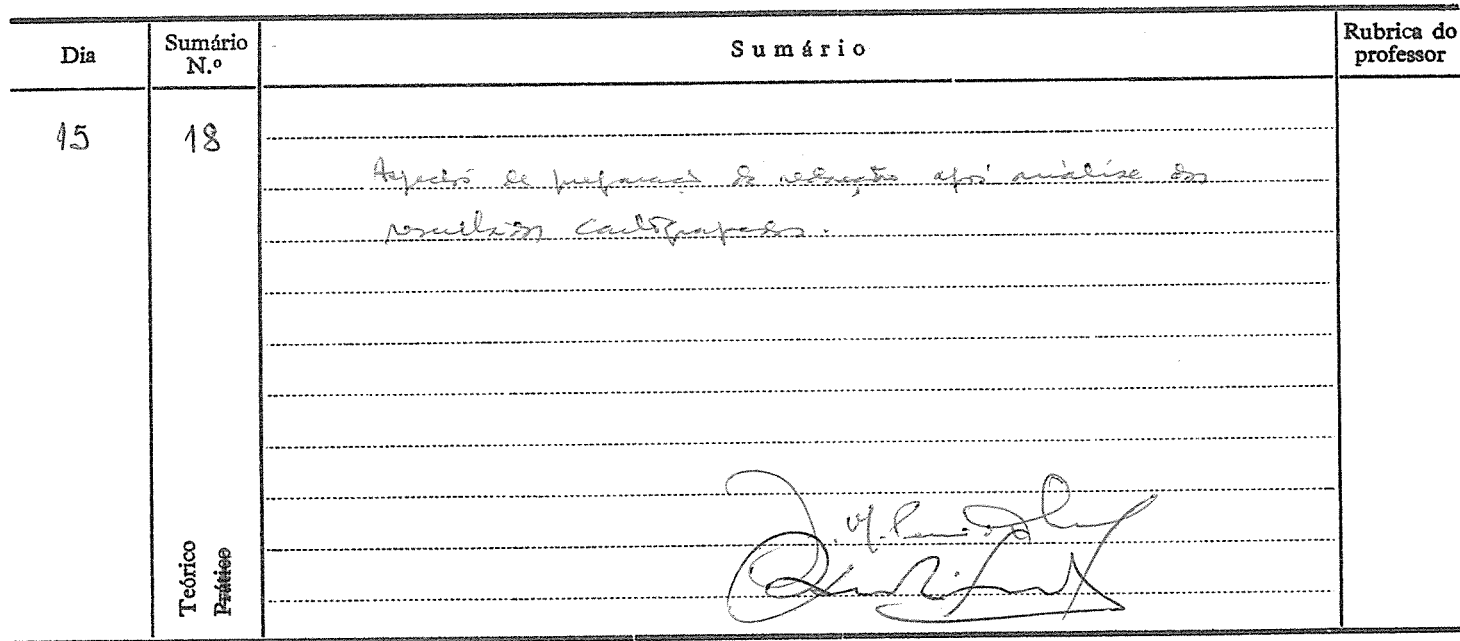 Dia
Sumário N.º
Sumário
Rubrica do professor
15
18
Aspectos de preparação da redacção após análise dos
resultados cartografados.
Teórico
Prático